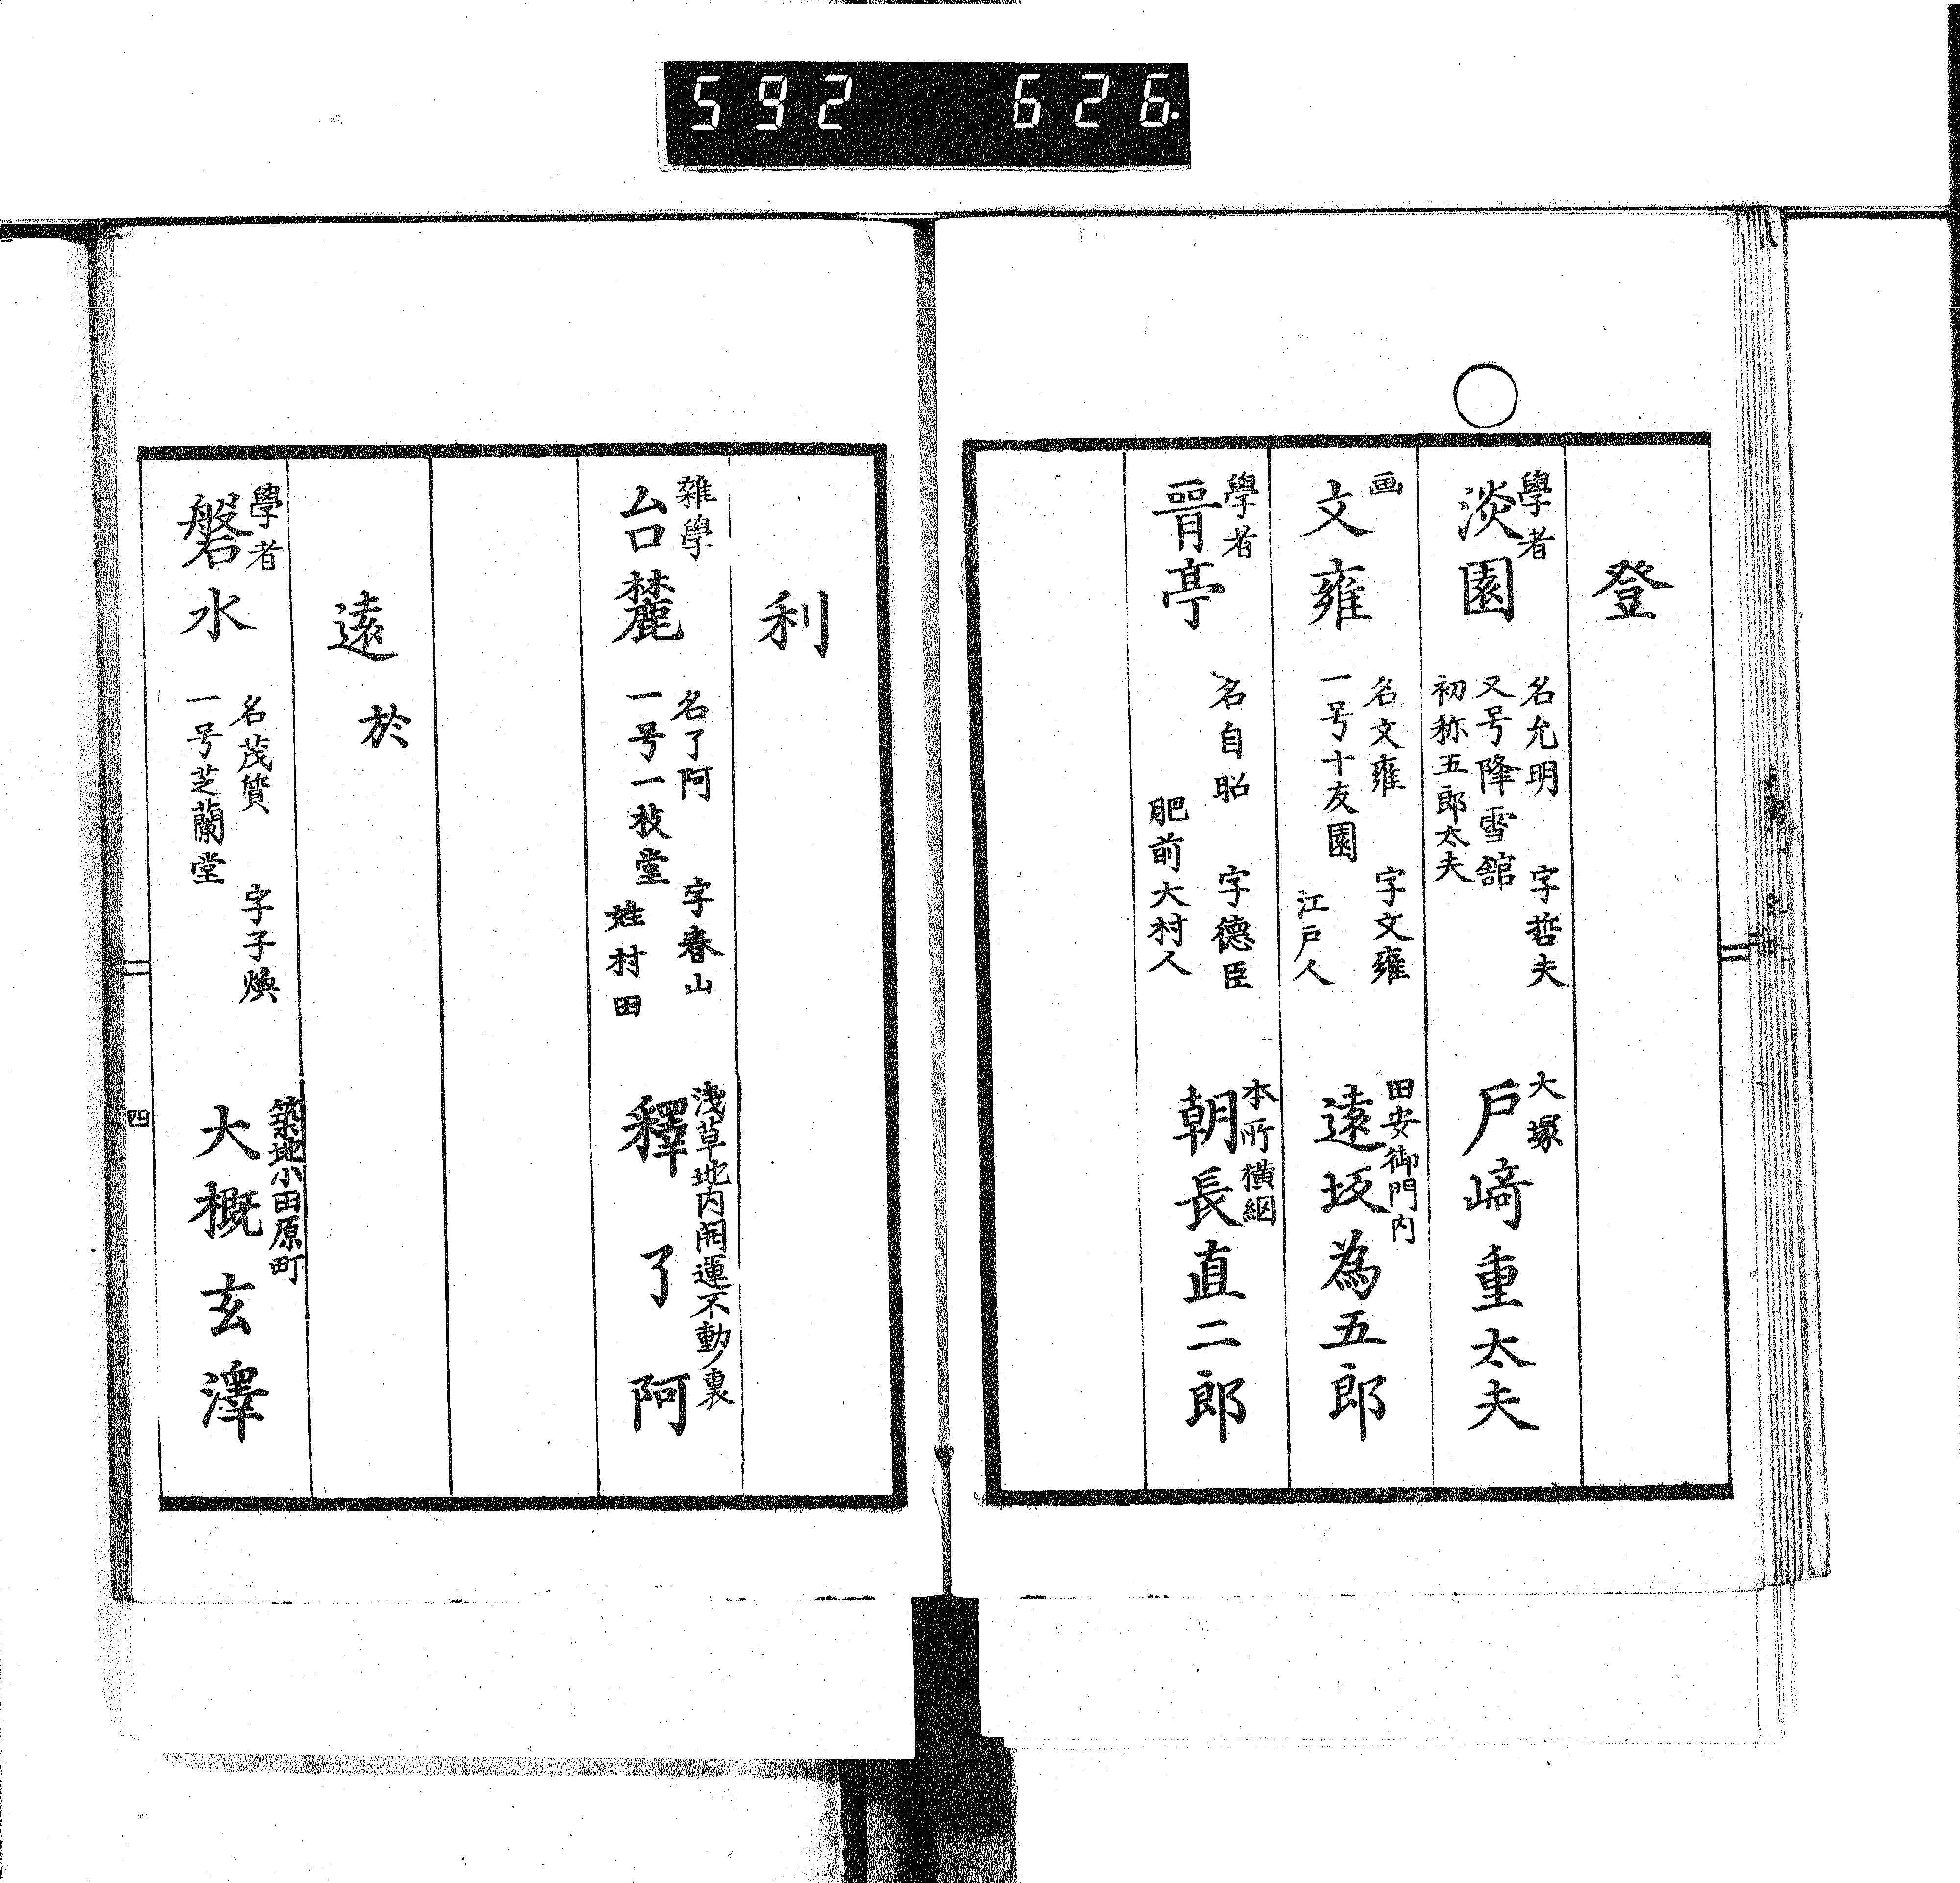 592 626.
登
學者
淡園
名允明 字哲夫
又号降雪舘
初称五郎太夫
大塚
戸﨑重太夫
画
文雍
名文雍 字文雍
一号十友園
江戸人
田安御門内
遠坂為五郎
學者
晋亭
名自昭 字德臣
肥前大村人
本所横網
朝長直二郎
利
雜學
台麓
名了阿 字春山
一号一枝堂
姓村田
淺草地内開運不動ノ裏
釋了阿
遠 於
學者
磐水
名茂質 字子煥
一号芝蘭堂
築地小田原町
大槻玄澤
四